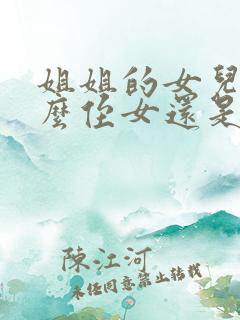 姐姐的女兒
麼侄女還是
陳江河
未經同意禁止轉載